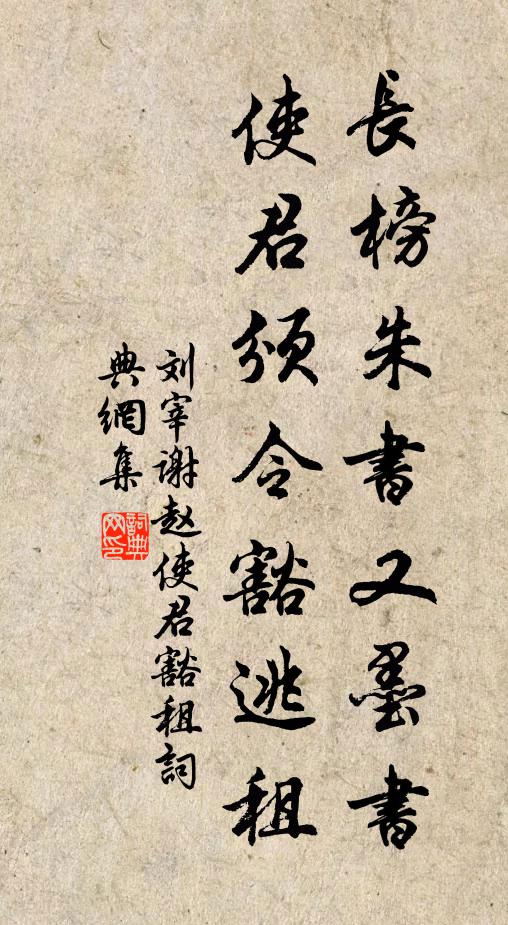 長榜朱書又墨書
使君頒令豁逃租
刘宰谢赵使君豁租詞
典網集
詞典
网印